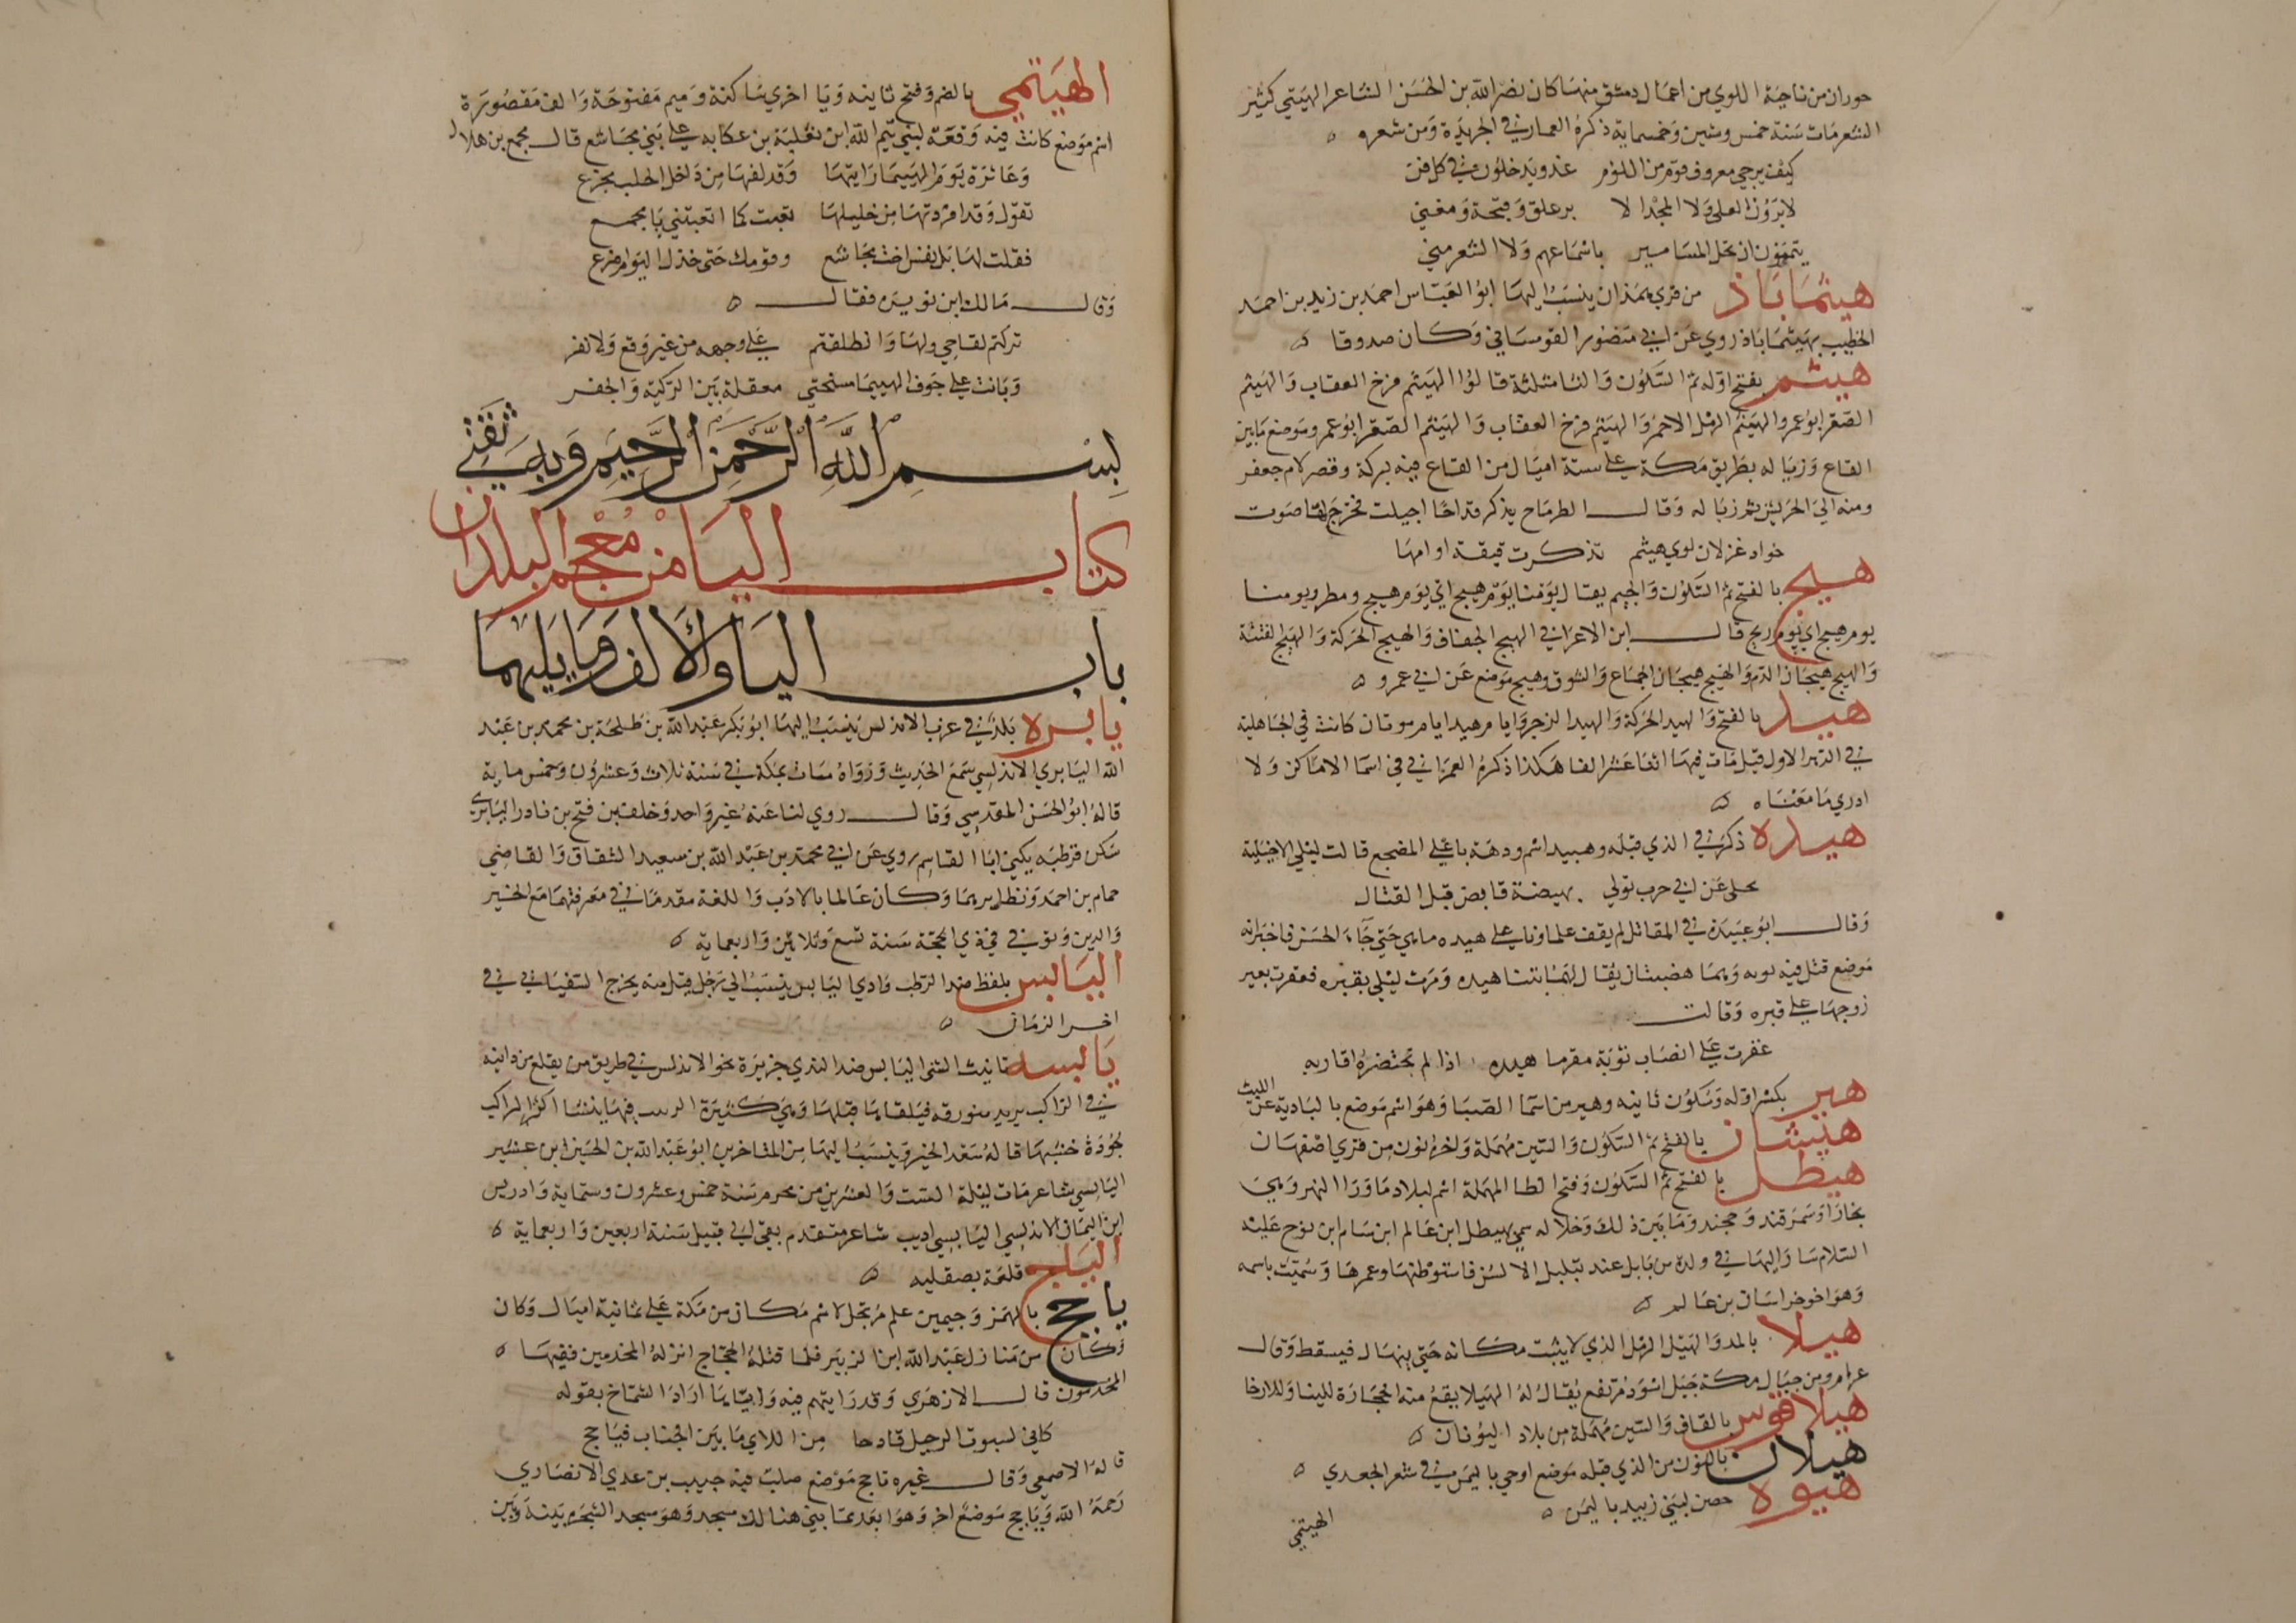 حوران من ناحية اللوي من اعمال دمشق منها كان نصر الله بن الحسن الشاعر الهيتي كثير
الشعر مات سنة خمس وستين وخمسماية ذكره العماد في الخريدة ومن شعره
كيف يرجى معروف قوم من اللؤم غدو يدخلون في كل فن
لا يرون العلى ولا المجد الا بر علق وقحبة ومغني
يتمنون ان تحل المسامير باسماعهم ولا الشعر مني
هيثماباذ من قري همذان ينسب اليها ابو العباس احمد بن زيد بن احمد
الخطيب بهيثماباذ روي عن ابي منصور القومساني وكان صدوقا
هيثم بفتح اوله ثم السكون والثا مثلثة قالوا الهيثم فرخ العقاب والهيثم
الصقر ابو عمرو الهيثم الرمل الاحمر والهيثم فرخ العقاب والهيثم الصقر ابو عمرو موضع ما بين
القاع وزباله بطريق مكة علي ستة اميال من القاع فيه بركة وقصر لام جعفر
ومنه الي الحريش ثم زباله وقال الطرماح يذكر قداحا اجيلت فخرج لها صوت
خوار غزلان لوي هيثم تذكرت فيقة اوامها
هيج بالفتح ثم السكون والجيم يقال يومنا يوم هيج اي يوم هيج ومطر ويومنا
يوم هيج اي يوم ريح قال ابن الاعرابي الهيج الجفاف والهيج الحركة والهيج الفتنة
والهيج هيجان الدم والهيج هيجان الجماع والشوق وهيج موضع عن ابي عمرو
هيد بالفتح والهيد الحركة والهيد الزجر وايام هيد ايام موتان كانت في الجاهلية
في الدهر الاول قيل مات فيها اثنا عشر الفا هكذا ذكره العمراني في اسما الاماكن ولا
ادري ما معناه
هيده ذكر في الذي قبله وهبيد اسم ردهة باعلي المضجع قالت ليلي الاخيلية
تخلي عن ابي حرب تولي بهيضة قابض قبل القتال
وقال ابو عبيدة في المقاتل لم يقف علماونا علي هيده ما هي حتي جاء الحسن فاخبر انه
موضع قتل فيه توبه وهما هضبتان يقال لهما بنتا هيده ومرت ليلي بقبره فعقرت بعير
زوجها علي قبره وقالت
عقرت علي انصاب توبة مقرما هيده اذا لم تحتضره اقاربه
هير بكسر اوله وسكون ثانيه وهير من اسما الصبا وهو اسم موضع بالبادية عن الليث
هيشان بالفتح ثم السكون والسين مهملة واخره نون من قري اصفهان
هيطل بالفتح ثم السكون وفتح الطا المهملة اسم لبلاد ما ورا النهر وهي
بخارا وسمرقند وخجند وما بين ذلك وخلاله سمي بهيطل ابن عالم ابن سام ابن نوح عليه
السلام سار اليها في ولده من بابل عند تبلبل الالسن فاستوطنها وعمرها وسميت باسمه
وهو اخو خراسان بن عالم
هيلا بالمد والهيل الرمل الذي لا يثبت مكانه حتي ينهال فيسقط وقال
عرام ومن جبال مكة جبل اسود مرتفع يقال له الهيلا يقع منه الحجارة للبنا وللارحا
هيلاقوس بالقاف والسين مهملة من بلاد اليونان
هيلان بالنون من الذي قبله موضع اوحي باليمن في شعر الجعدي
هيوه حصن لبني زبيد باليمن
الهيتمي
الهيتمي بالضم وفتح ثانيه ويا اخري ساكنة وميم مفتوحة والف مقصورة
اسم موضع كانت فيه وقعة لبني تيم الله ابن ثعلبة بن عكابه علي بني مجاشع قال مجمع بن هلال
وعاثرة يوم الهييما رايتها وقد لفها من داخل الخلب مجزع
تقول وقد افردتها من خليلها تعبت كما اتعبتني يا مجمع
فقلت لها بل نفس اخت مجاشع وقومك حتي خدك اليوم اضرع
وقال مالك ابن نويره فقال
تركتم لقاحي ولها وانطلقتم علي وجهه من غير وقع ولا نفر
وباتت علي جوف الهييما منحتي معقلة بين الركية والجفر
بسم الله الرحمن الرحيم وبه ثقتي
كتاب اليا من معجم البلدان
باب اليا والالف وما يليهما
يابره بلد في غرب الاندلس ينسب اليها ابو بكر عبد الله بن طلحة بن محمد بن عبد
الله اليابري الاندلسي سمع الحديث ورواه مات بمكة في سنة ثلاث وعشرون وخمس ماية
قاله ابو الحسن المقدسي وقال روي لنا عنه غير واحد وخلف بن فتح بن نادر اليابري
سكن قرطبه يكني ابا القاسم روي عن ابي محمد بن عبد الله بن سعيد الشقاق والقاضي
حمام بن احمد ونظرايهما وكان عالما بالادب واللغة مقدما في معرفتهما مع الخير
والدين وتوفي في ذي الحجة سنة تسع وثلاثين واربعماية
اليابس بلفظ ضد الرطب وادي اليابس ينسب الي رجل قيل منه يخرج السفياني في
اخر الزمان
يابسه تانيث الشي اليابس ضد الندي جزيرة نحو الاندلس في طريق من يقلع من دانيه
في المراكب يريد ميورقه فيلقاها قبلها وهي كثيرة الزبيب فيها ينشا اكثر المراكب
لجودة خشبها قاله سعد الخير وينسب اليها من المتاخرين ابو عبد الله بن الحسين ابن عشير
اليابسي شاعر مات ليلة السبت والعشرين من محرم سنة خمس وعشرون وستماية وادريس
ابن اليمان الاندلسي اليابسي اديب شاعر متقدم بقي الي قبيل سنة اربعين واربعماية
اليابج قلعة بصقليه
ياجج بالهمز وجيمين علم مرتجل لاسم مكان من مكة علي ثمانية اميال وكان
وكان من منازل عبد الله ابن الزبير فلما قتله الحجاج انزله المجذمين فقيها
المجذمون قال الازهري وقد رايتهم فيه واياها اراد الشماخ بقوله
كاني كسوت الرحل قادحا من اللاي ما بين الجناب فياجج
قاله الاصمعي وقال غيره ناجج موضع صلب فيه حبيب بن عدي الانصاري
رحمه الله وياجج موضع اخر وهو ابعدهما بني هنالك مسجد وهو مسجد الشجره بينه وبين